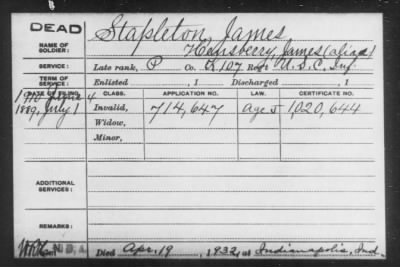 DEAD
Stapleton, James
NAME OF SOLDIER:
Hansberry, James (alias)
SERVICE:
Late rank, P Co. K, 107 Reg't U.S.C. Inf.
TERM OF SERVICE:
Enlisted , 1 Discharged , 1
DATE OF FILING. CLASS. APPLICATION NO. LAW. CERTIFICATE NO.
4
1889, July 1 Invalid, 714,647 1,020,644
Widow,
Minor,
ADDITIONAL SERVICES:
REMARKS:
Died Apr. 19, 1932, at Indianapolis, Ind.